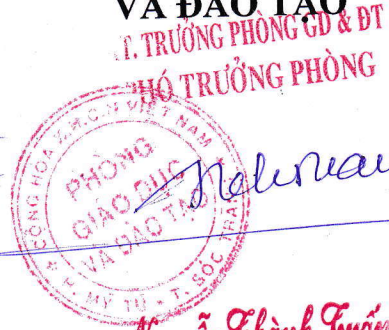 VÀ ĐÀO TẠO
T. TRƯỞNG PHÒNG GD & ĐT
PHÓ TRƯỞNG PHÒNG
CỘNG HÒA X.H.C.N VIỆT NAM
PHÒNG
GIÁO DỤC
VÀ ĐÀO TẠO
H. MỸ TÚ - T. SÓC TRĂNG
Thành